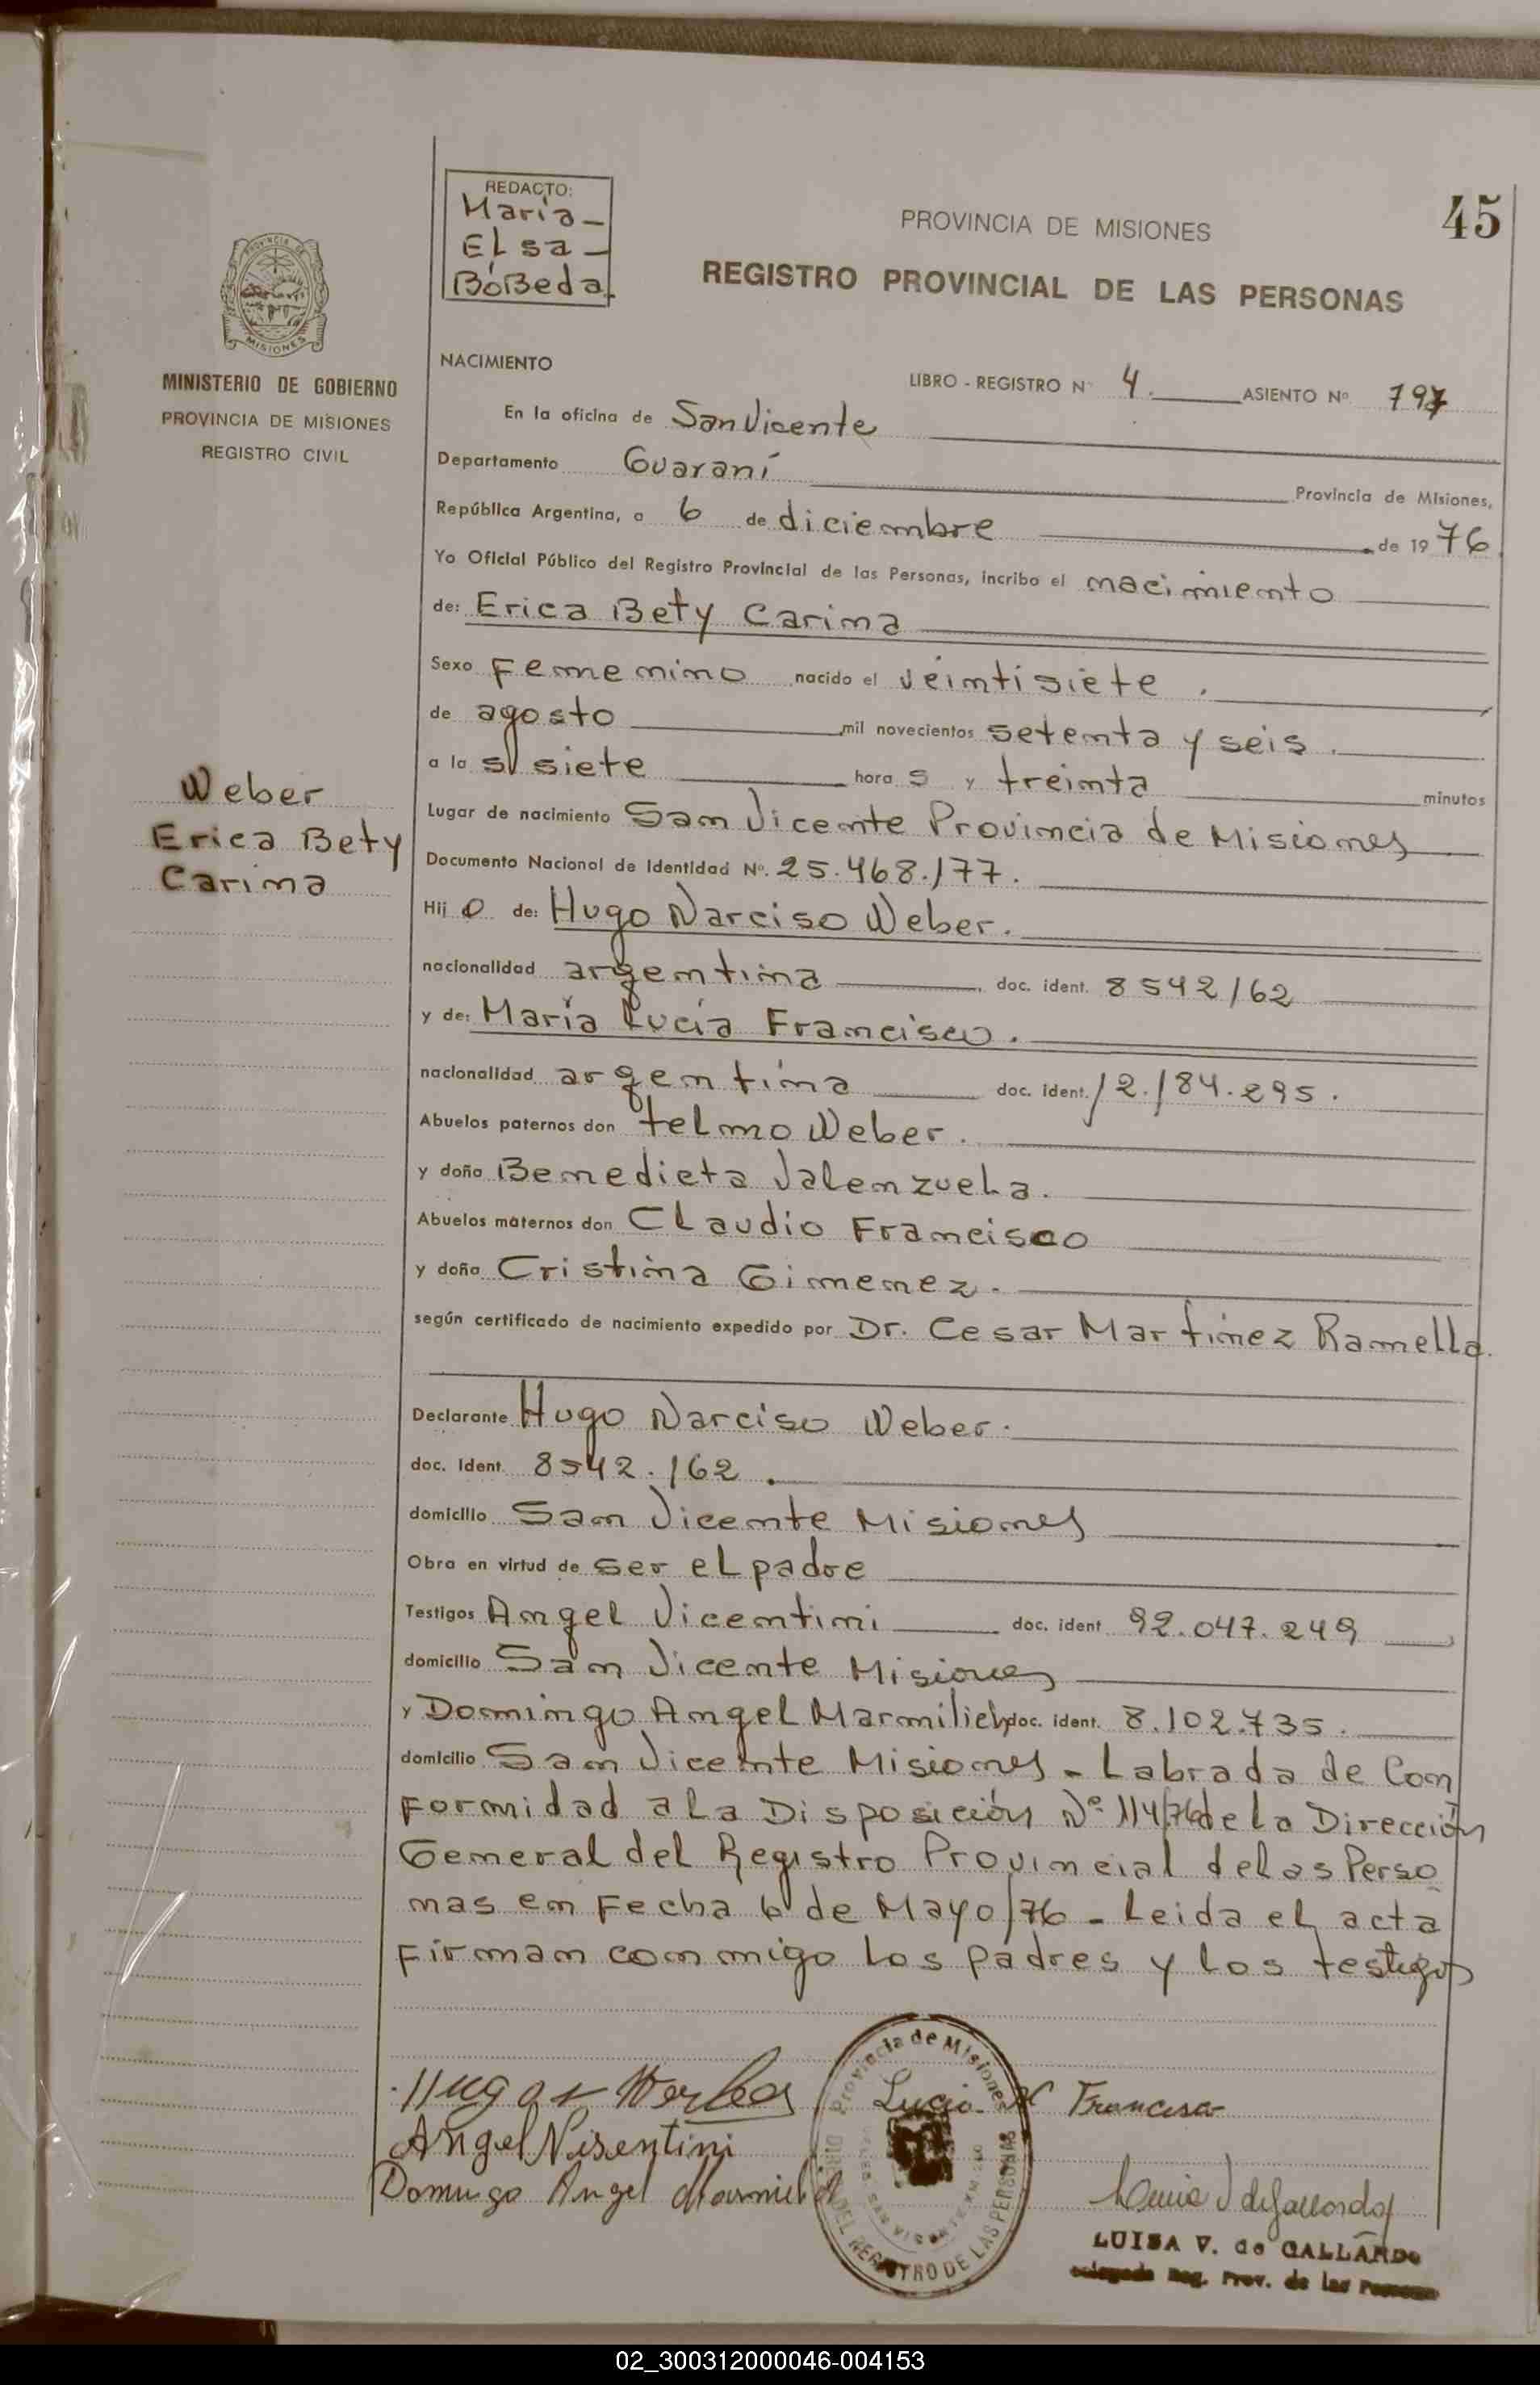 REDACTO:
María -
ELsa -
BóBeda.
PROVINCIA DE MISIONES
45
REGISTRO PROVINCIAL DE LAS PERSONAS
PROVINCIA DE
MISIONES
MINISTERIO DE GOBIERNO
PROVINCIA DE MISIONES
REGISTRO CIVIL
NACIMIENTO
LIBRO - REGISTRO Nº 4. ASIENTO Nº 797
En la oficina de San Vicente
Departamento Guaraní Provincia de Misiones,
República Argentina, a 6 de diciembre de 1976.
Yo Oficial Público del Registro Provincial de las Personas, incribo el nacimiento
de: Erica Bety Carina
Sexo Femenino nacido el veintisiete.
de agosto mil novecientos setenta y seis.
a las siete horas y treinta minutos
Weber
Erica Bety
Carina
Lugar de nacimiento San Vicente Provincia de Misiones
Documento Nacional de Identidad Nº. 25.468.177.
Hijo de: Hugo Narciso Weber.
nacionalidad argentina doc. ident. 8542162
y de: María Lucía Francisco.
nacionalidad argentina doc. ident. 12.184.295.
Abuelos paternos don telmo Weber.
y doña Benedicta Valenzuela.
Abuelos maternos don Claudio Francisco
y doña Cristina Gimenez.
según certificado de nacimiento expedido por Dr. Cesar Martinez Ramella.
Declarante Hugo Narciso Weber.
doc. Ident. 8542.162.
domicilio San Vicente Misiones
Obra en virtud de ser el padre
Testigos Angel Vicentini doc. ident. 92.047.249
domicilio San Vicente Misiones
y Domingo Angel Marmilich doc. ident. 8.102.735.
domicilio San Vicente Misiones - Labrada de Con
Formidad a La Disposición Nº 114/76 de La Dirección
General del Registro Provincial de las Perso
nas en Fecha 6 de Mayo/76 - Leida el acta
Firman conmigo los padres y los testigos
Hugo N Weber
Lucia Francisco
Angel Visentini
Domingo Angel Marmilich
Provincia de Misiones
REGISTRO DE LAS PERSONAS
Luisa V de Gallardo
LUISA V. de GALLARDO
Delegada Reg. Prov. de las Personas
02_300312000046-004153